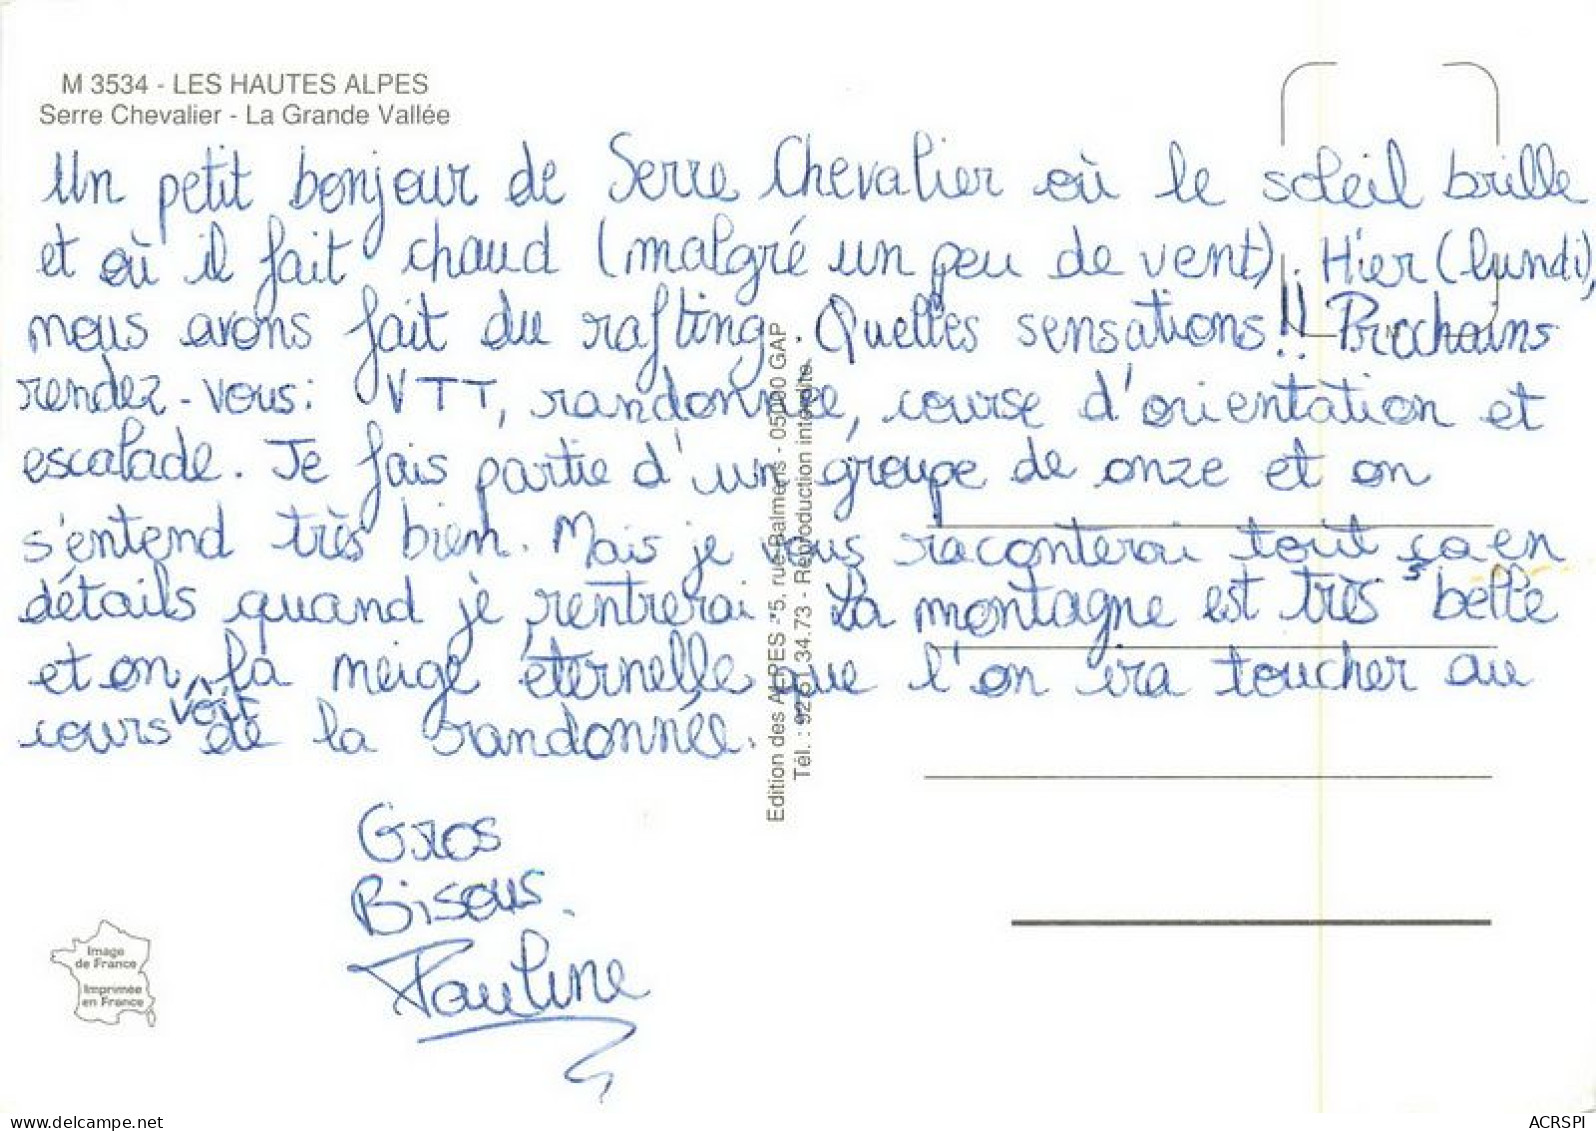 M 3534 - LES HAUTES ALPES
Serre Chevalier - La Grande Vallée
Un petit bonjour de Serre Chevalier où le soleil brille
et où il fait chaud (malgré un peu de vent). Hier (lundi),
nous avons fait du rafting. Quelles sensations!! Prochains
rendez-vous: VTT, randonnée, course d'orientation et
escalade. Je fais partie d'un groupe de onze et on
s'entend très bien. Mais je vous raconterai tout ça en
détails quand je rentrerai. La montagne est très belle
et on voit la neige éternelle que l'on ira toucher au
cours de la randonnée.
Gros
Bisous.
Pauline
Edition des ALPES - 5, rue Balmens - 05000 GAP
Tél. : 92.51.34.73 - Reproduction interdite
Image
de France
Imprimée
en France
delcampe.net
ACRSPI